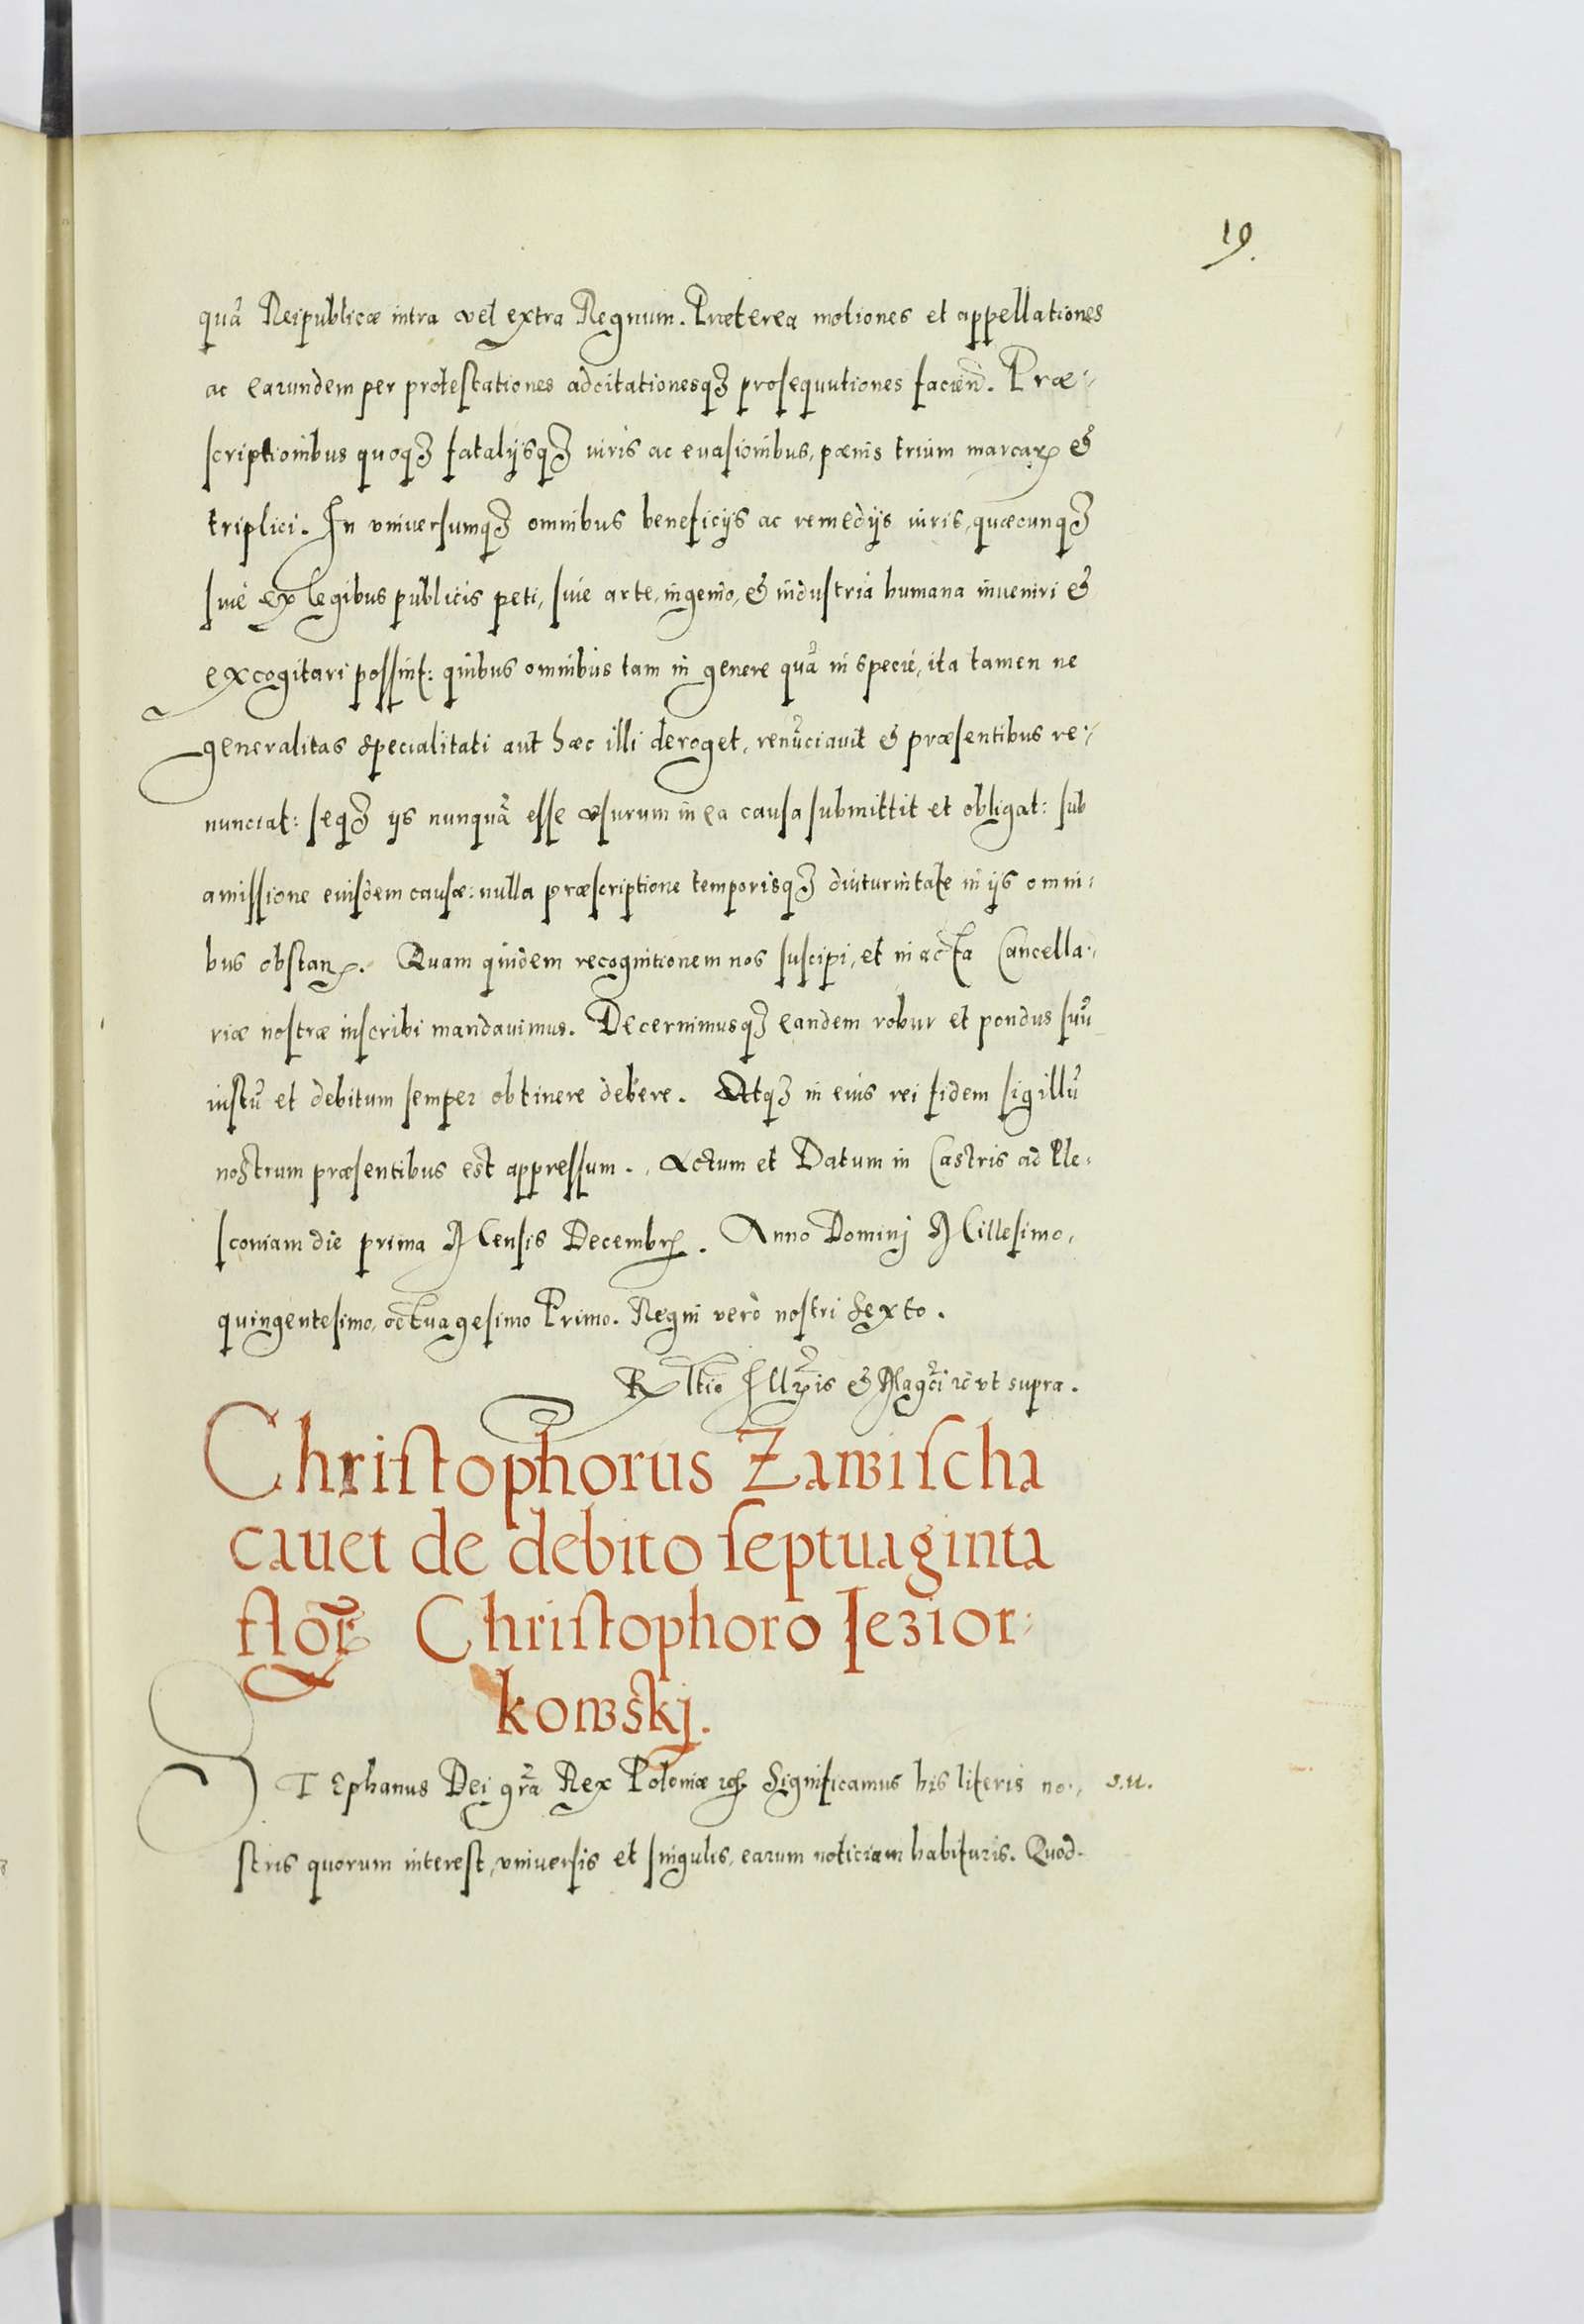 19.
quã Reipublicæ intra vel extra Regnum. Præterea motiones et appellationes
ac earundem per protestationes adcitationesqꝫ prosequutiones faciend. Præ⸗
scriptionibus quoqꝫ fatalijsqꝫ iuris ac euasionibus, pœnis trium marcarꝝ &
triplici. In vniuersumqꝫ omnibus beneficijs ac remedijs iuris, quæcunqꝫ
siue ex legibus publicis peti, siue arte, ingenio, & industria humana inueniri &
excogitari possint: quibus omnibus tam in genere quã in specie, ita tamen ne
generalitas specialitati aut hæc illi deroget, renũciauit & præsentibus re⸗
nunciat: seqꝫ ijs nunquã esse vsurum in ea causa submittit et obligat: sub
amissione eiusdem causæ: nulla præscriptione temporisqꝫ diuturnitate in ijs omni⸗
bus obstan. Quam quidem recognitionem nos suscipi, et in acta Cancella⸗
riæ nostræ inscribi mandauimus. Decernimusqꝫ eandem robur et pondus suũ
iustũ et debitum semper obtinere debere. Atqꝫ in eius rei fidem sigillũ
nostrum præsentibus est appressum. Actum et Datum in Castris ad Ple⸗
scouiam die prima Mensis Decembrꝭ. Anno Dominj Millesimo,
quingentesimo, octuagesimo Primo. Regni verò nostri Sexto.
Rltio Illris & Magci ꝛc vt supra.
Christophorus Zawischa
cauet de debito septuaginta
flor Christophoro Iezior⸗
kowskj.
STEphanus Dei gra Rex Poloniæ ꝛc Significamus his literis no⸗ s.u.
stris quorum interest, vniuersis et singulis, earum noticiam habituris. Quod